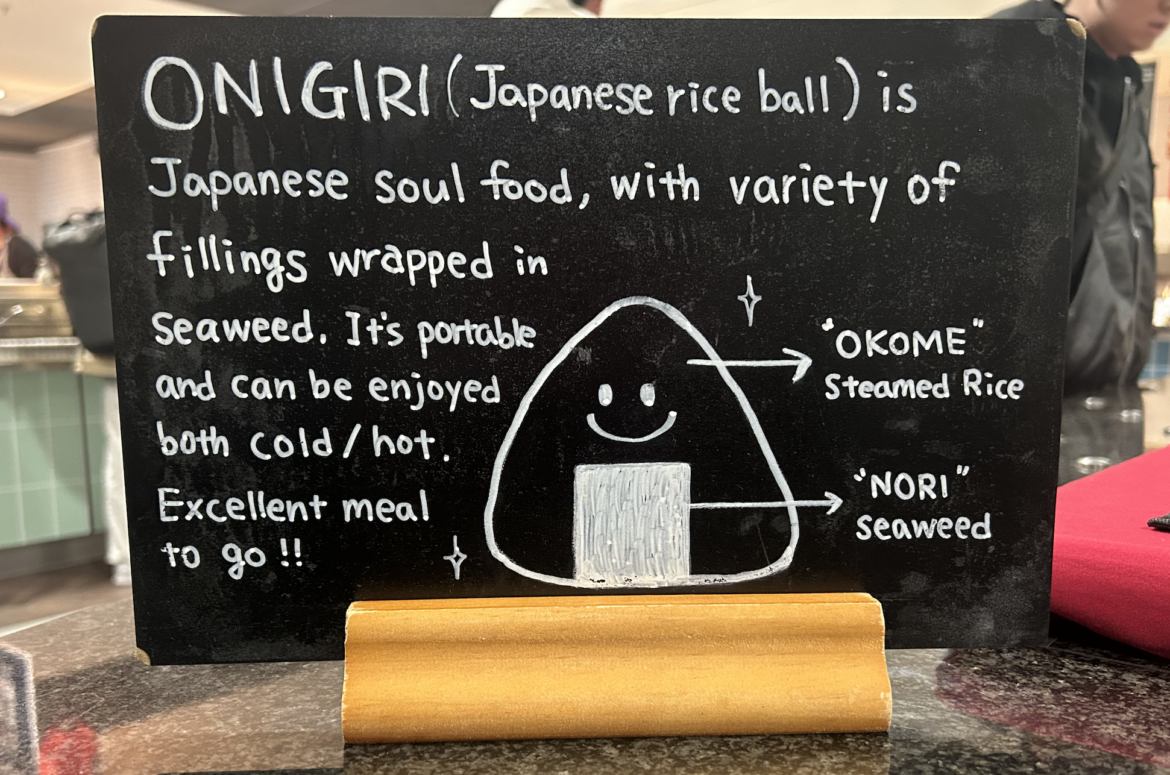 ONIGIRI (Japanese rice ball) is
Japanese soul food, with variety of
fillings wrapped in
seaweed. It's portable
and can be enjoyed
both cold/hot.
Excellent meal
to go!!
"OKOME"
Steamed Rice
"NORI"
seaweed